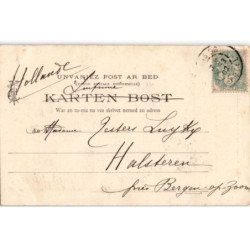 Hollande
UNVANIEZ POST AR BED
Imprimé
KARTEN BOST
War an tu-ma na vez skrivet nemed an adres
Madame Zesters Luyky
Halsteren
près Bergen-op-Zoom